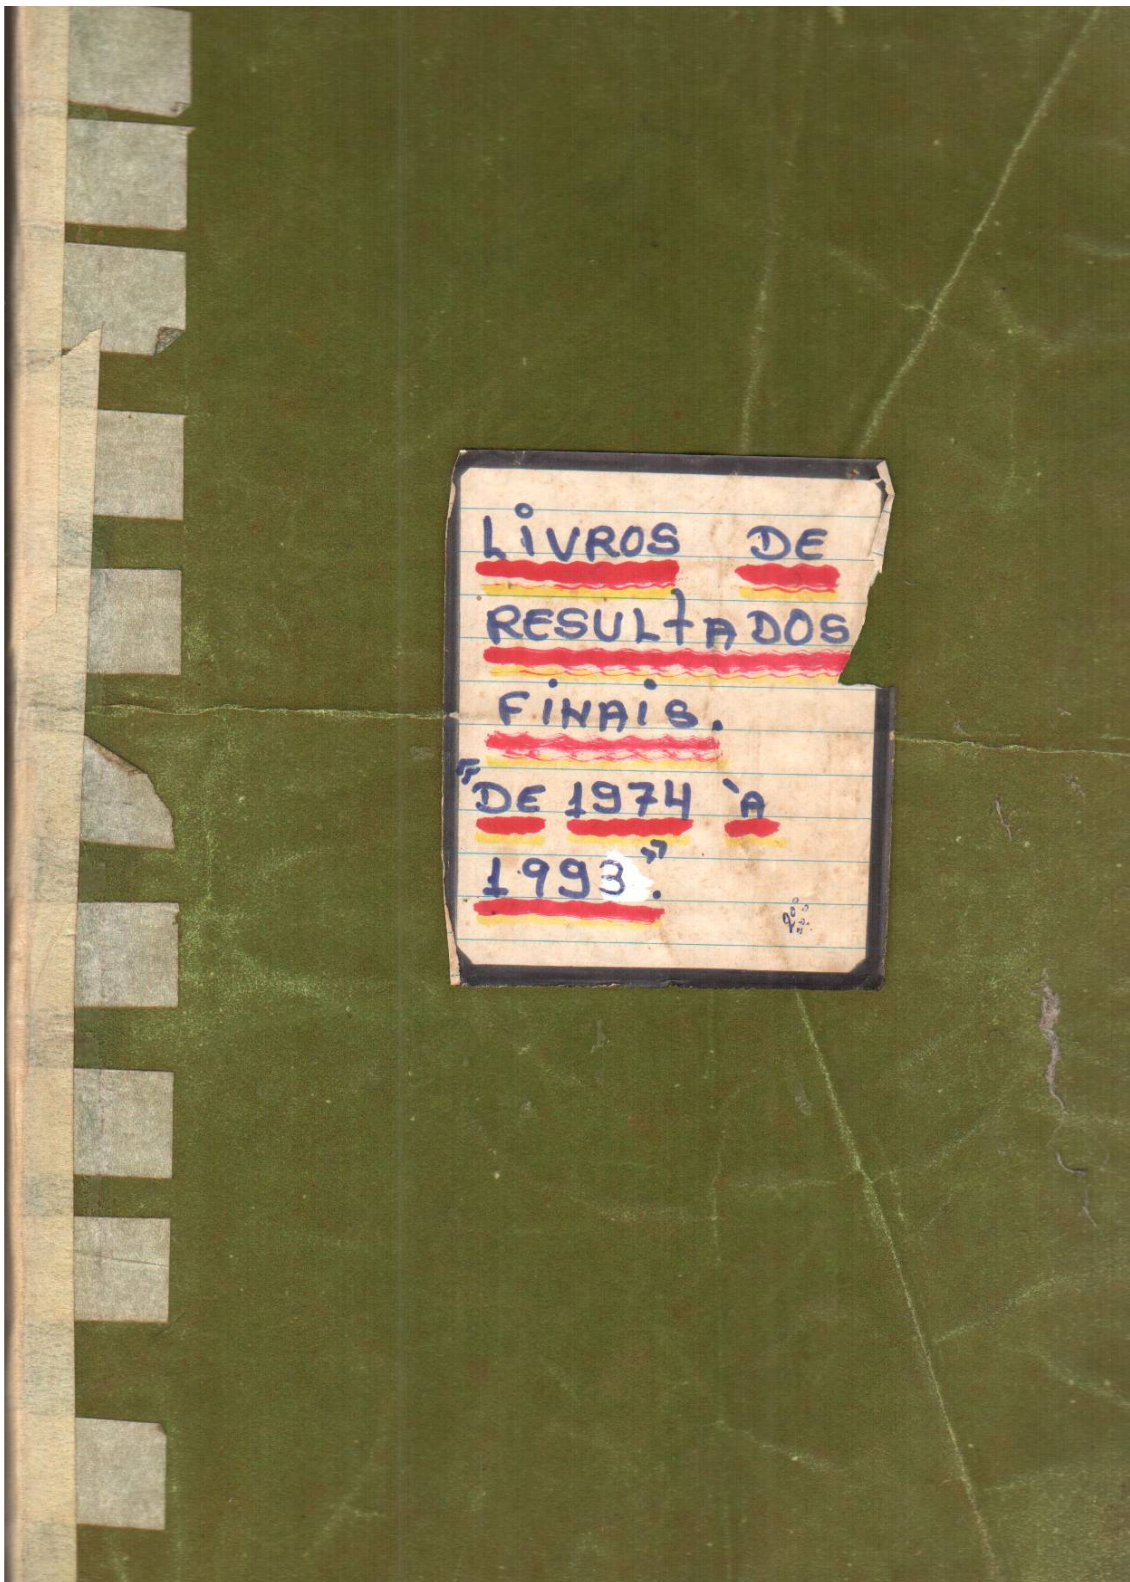 LiVROS DE
RESULtADOS
FiNAiS.
"DE 1974 `A
1993".